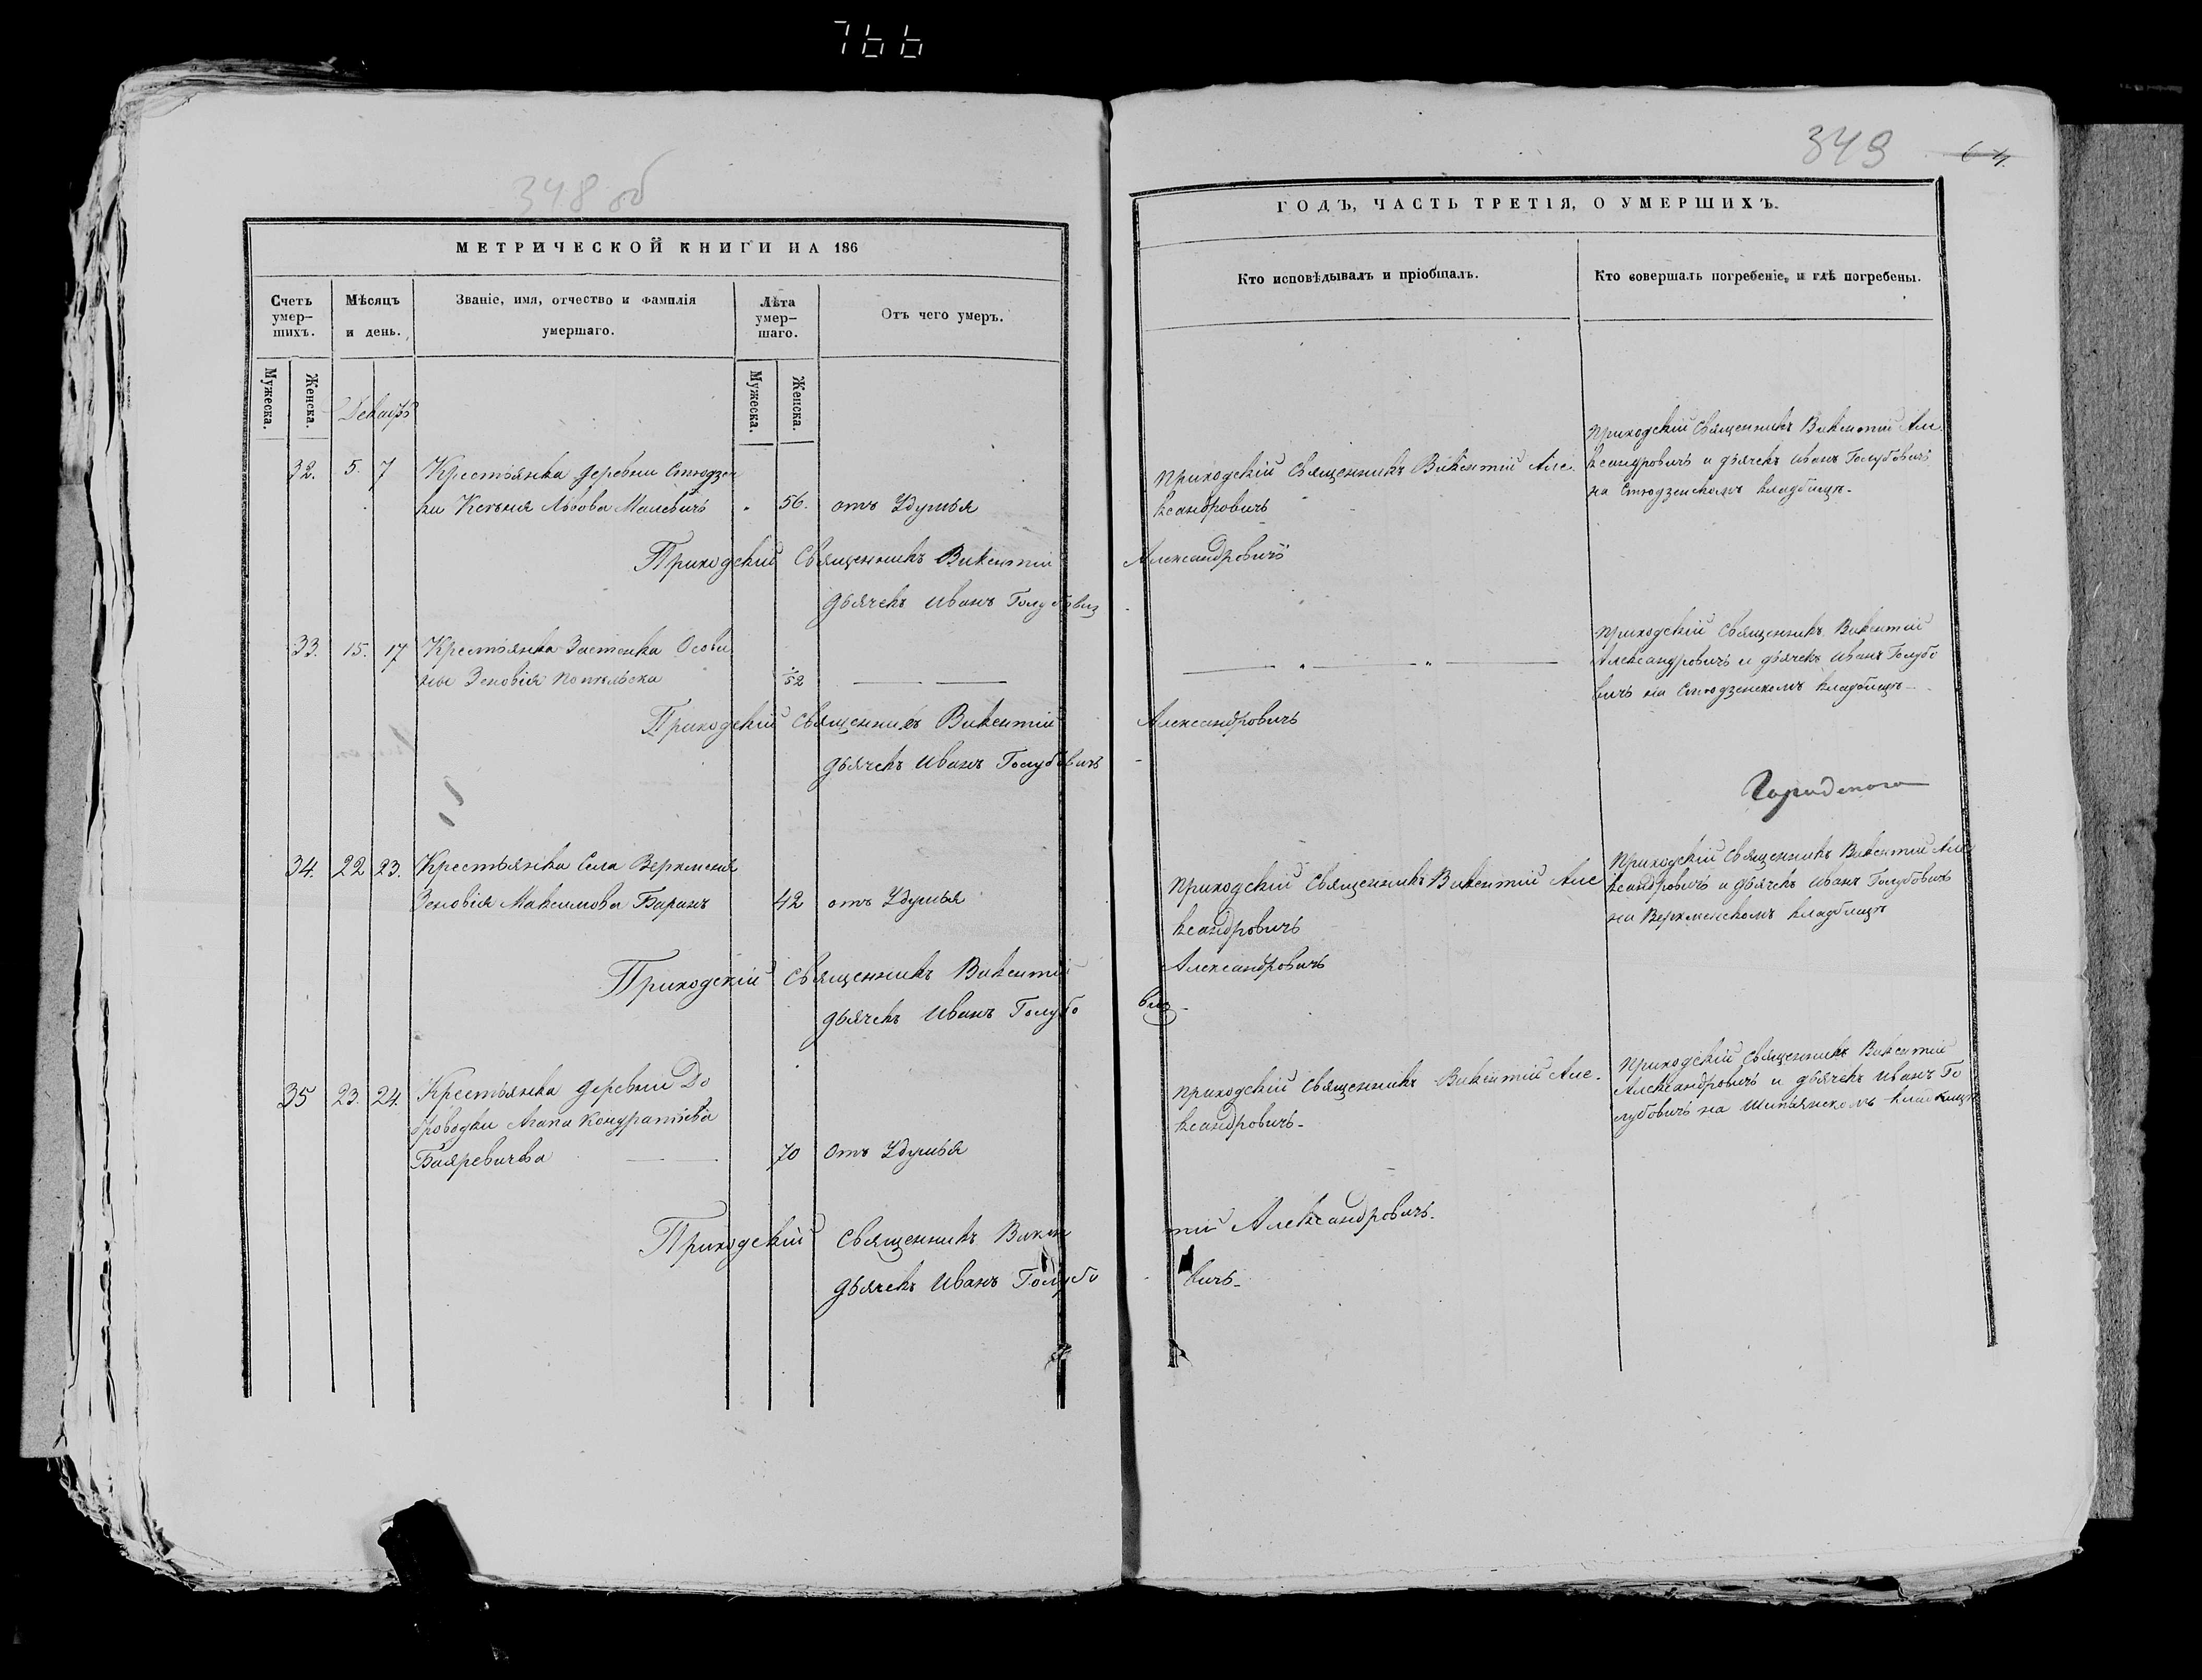 766
348 об
МЕТРИЧЕСКОЙ КНИГИ НА 186
Счетъ умер-шихъ.
Мѣсяцъ и день.
Званіе, имя, отчество и фамилія умершаго.
Лѣта умер-шаго.
Отъ чего умеръ.
Мужеска.
Женска.
Мужеска.
Женска.
Декабрь
32. 5. 7 Крестьянка деревни Стюдзен
ки Ксенія Львова Малевичъ " 56. отъ Удушья
Приходскій Священникъ Викентій
дьячекъ Иванъ Голубовичъ
33. 15. 17 Крестьянка Застенка Осови
ны Зеновія 52
Приходскій Священникъ Викентій
дьячекъ Иванъ Голубовичъ
34. 22 23. Крестьянка Села
Зеновія Максимова Баранъ 42 отъ Удушья
Приходскій Священникъ Викентій
дьячекъ Иванъ Голубо
35 23. 24. Крестьянка деревни До
броводки Агапа Кондратьева
70 Отъ Удушья
Приходскій Священникъ Викен
дьячекъ Иванъ Голубо
349
64.
ГОДЪ, ЧАСТЬ ТРЕТІЯ, О УМЕРШИХЪ.
Кто исповѣдывалъ и пріобщалъ.
Кто совершалъ погребеніе, и гдѣ погребены.
Приходскій Священникъ Викентій Але
ксандровичъ и дьячекъ Иванъ Голубовичъ
на Стюдзенскомъ кладбищѣ.
Приходскій Священникъ Викентій Але.
ксандровичъ
Александровичъ
Приходскій Священникъ Викентій
Александровичъ и дьячекъ Иванъ Голубо
вичъ на Стюдзенскомъ кладбищѣ
Александровичъ
Приходскій Священникъ Викентій Але
ксандровичъ и дьячекъ Иванъ Голубовичъ
на кладбищѣ
Приходскій Священникъ Викентій Але
ксандровичъ
Александровичъ
вичъ
Приходскій Священникъ Викентій
Александровичъ и дьячекъ Иванъ Го
лубовичъ на кладбищѣ
Приходскій Священникъ Викентій Але.
ксандровичъ.
тій Александровичъ.
вичъ.